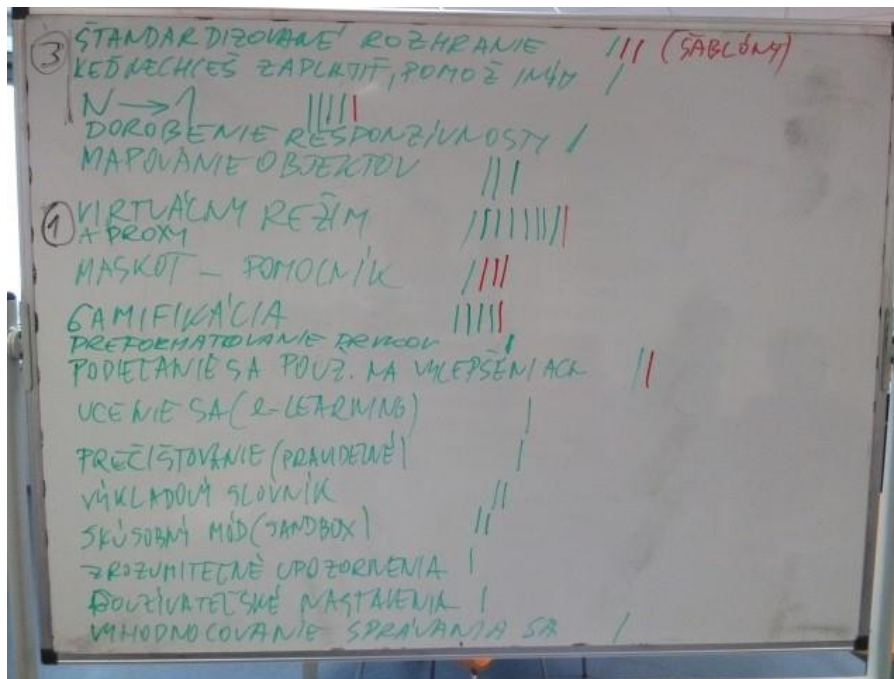 ③ ŠTANDARDIZOVANÉ ROZHRANIE /// (ŠABLÓNY)
KEĎ NECHCEŠ ZAPLATIŤ, POMÔŽ INÝM /
N → 1 ||||||
DOROBENIE RESPONZÍVNOSTI /
MAPOVANIE OBJEKTOV |||
① VIRTUÁLNY REŽIM
A PROXY
MASKOT – POMOCNÍK ////
GAMIFIKÁCIA |||||
PREFORMATOVANIE PRVKOV |
PODIEĽANIE SA POUŽ. NA VYLEPŠENIACH ||
UČENIE SA (e-LEARNING) |
PREČISŤOVANIE (PRAVIDELNÉ) |
VÝKLADOVÝ SLOVNÍK ||
SKÚSOBNÝ MÓD (SANDBOX) ||
ZROZUMITEĽNÉ UPOZORNENIA |
POUŽÍVATEĽSKÉ NASTAVENIA |
VYHODNOCOVANIE SPRÁVANIA SA /